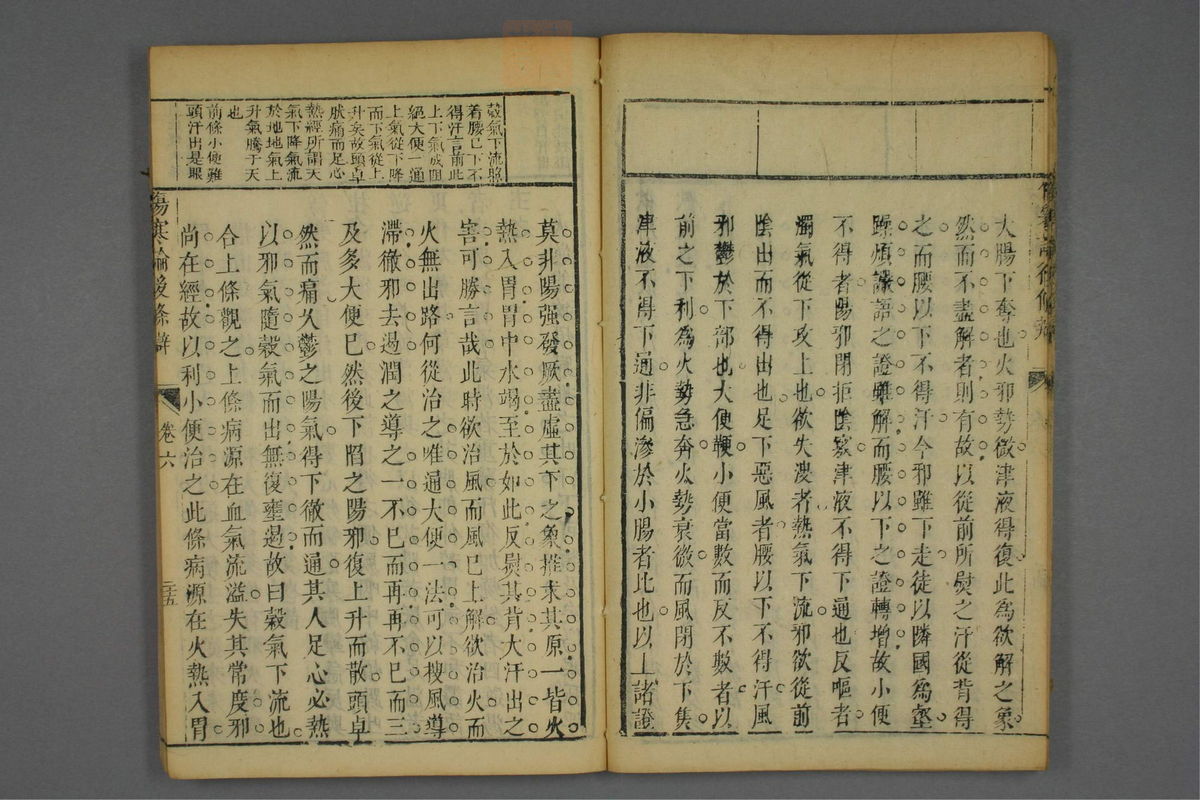 大腸下奪也火邪勢微津液得復此為欲解之象
然而不盡解者則有故以從前所熨之汗從背得
之而腰以下不得汗今邪雖下走徒以隣國為壑
躁煩譫語之證雖解而腰以下之證轉增故小便
不得者陽邪閉拒陰竅津液不得下通也反嘔者
濁氣從下攻上也欲失溲者熱氣下流邪欲從前
陰出而不得出也足下惡風者腰以下不得汗風
邪鬱於下部也大便鞕小便當數而反不數者以
前之下利為火勢急奔火勢衰微而風閉於下焦
津液不得下通非偏滲於小腸者比也以上諸證
莫非陽强發厥盡虛其下之象推求其原一皆火
熱入胃胃中水竭至於如此反熨其背大汗出之
害可勝言哉此時欲治風而風已上解欲治火而
火無出路何從治之唯通大便一法可以搜風導
滯徹邪去過潤之導之一不已而再再不已而三
及多大便已然後下陷之陽邪復上升而散頭卓
然而痛久鬱之陽氣得下徹而通其人足心必熱
以邪氣隨穀氣而出無復壅遏故曰穀氣下流也
合上條觀之上條病源在血氣流溢失其常度邪
尚在經故以利小便治之此條病源在火熱入胃
穀氣下流照
着腰已下不
得汗言前此
上下氣成阻
絕大便一通
上氣從下降
而下氣從上
升矣故頭卓
然痛而足心
熱經所謂天
氣下降氣流
於地地氣上
升氣騰于天
也
前條小便難
頭汗出是眼
傷寒論後條辯
卷六
三五